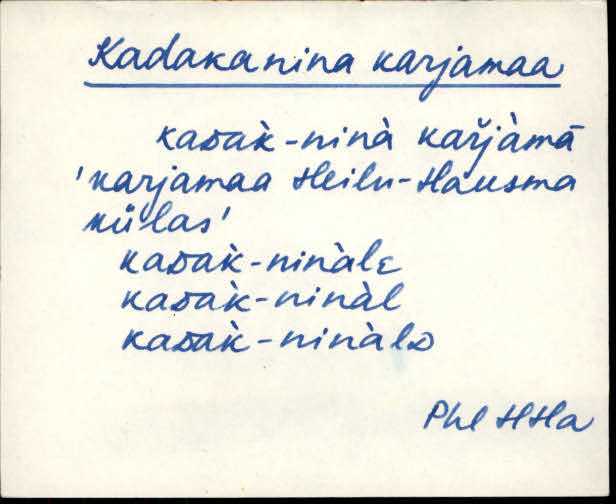 Kadakanina karjamaa
kaᴅàk-ninà kaŕjàmā
'karjamaa Heilu-Hausma
külas'
kaᴅàk-ninàlᴇ
kaᴅàk-ninàl
kaᴅàk-ninàlᴅ
Phl HHa